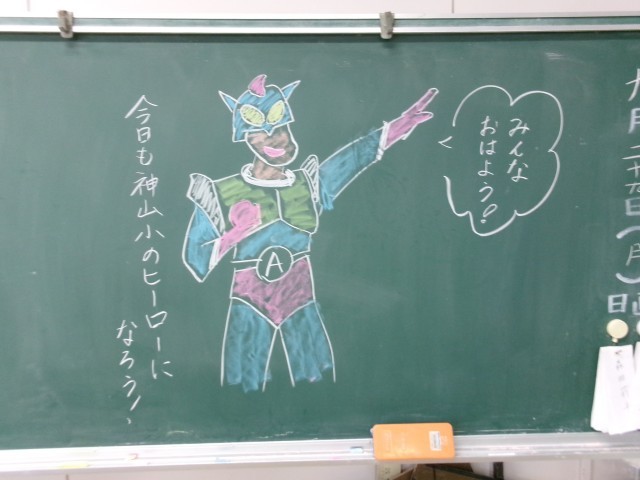 九月二十五日(月)
日直
みんな
おはよう!
A
今日も神山小のヒーローに
なろう!